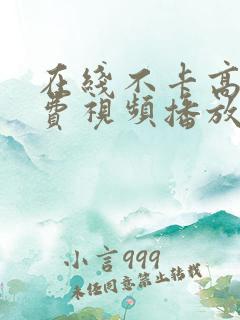 在綫不卡高
費視頻播放
小言999
未经同意禁止转载